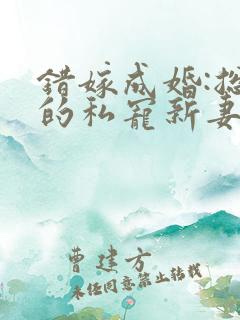 错嫁成婚:总
的私宠新妻
曹建方
未经同意禁止转载